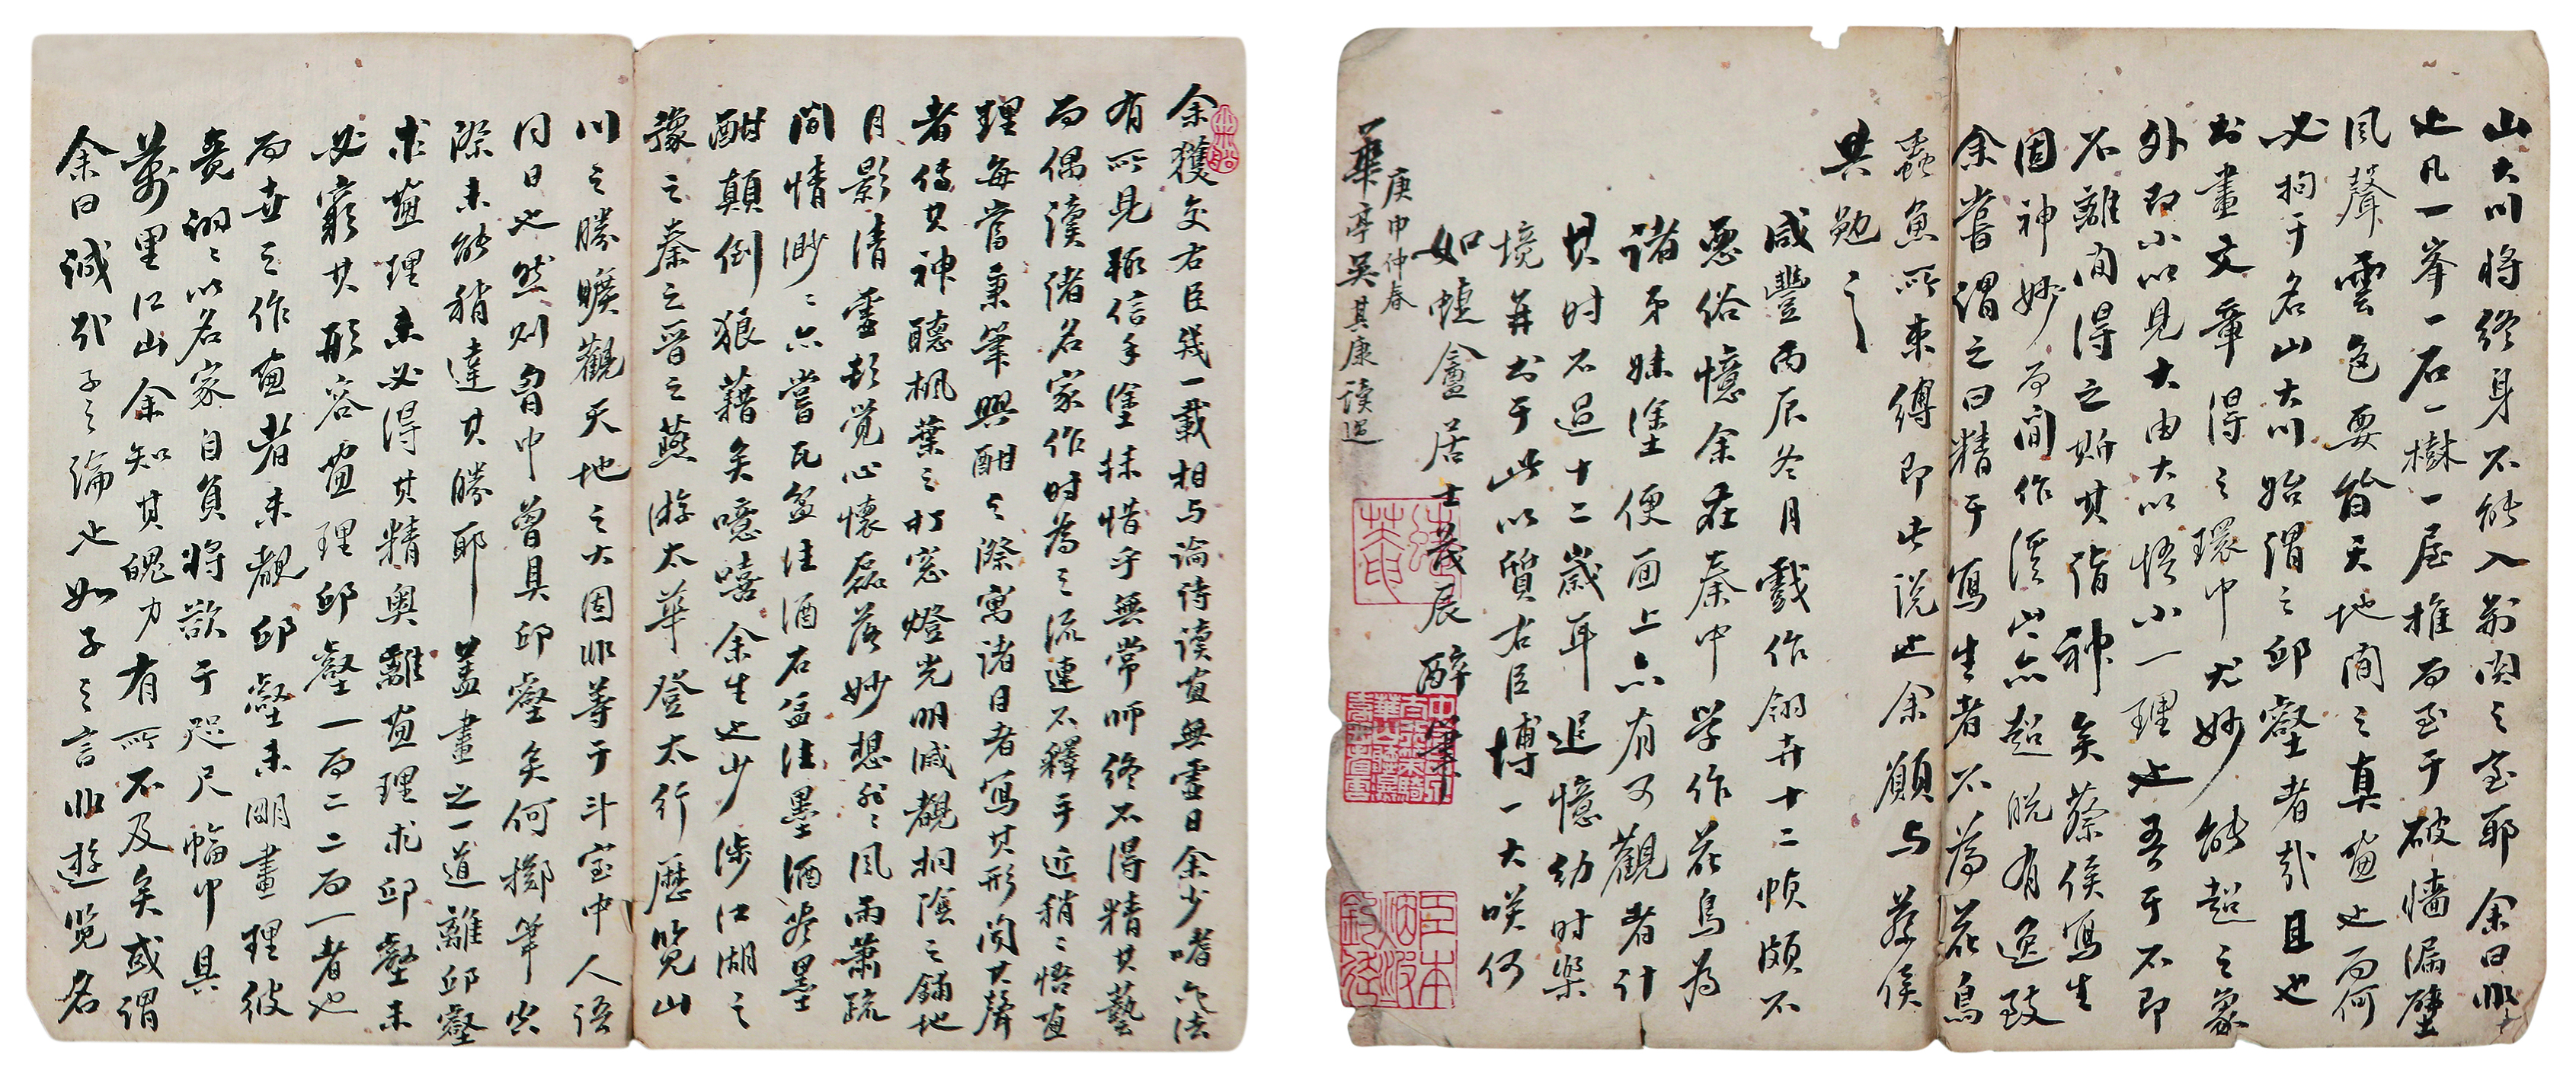 余獲交右臣幾一載相与論詩讀画無虛日余少嗜六法
有所見輒信手塗抹惜乎無常師終不得精其藝
而偶讀諸名家作时為之流連不釋手近稍稍悟画
理每當秉筆興酣之際寓諸目者寫其形聞其聲
者傳其神聽枫葉之打窓燈光明滅覩桐陰之鋪地
月影清虛彭觉心懷磊落妙想飛飛風雨蕭疏
閒情渺渺亦嘗瓦盆注酒石盂注墨酒盡墨
酣顛倒狼藉矣噫嘻余生也少涉江湖之
豫之秦之晉之燕游太華登太行歷览山
川之勝曠觀天地之大固非等于斗室中人语
同日也然则胷中曾具邱壑矣何擲筆尖
際未能稍達其勝耶蓋畫之一道離邱壑
求画理未必得其精奥離画理求邱壑未
必窮其形容画理邱壑一而二二而一者也
而世之作画者未覩邱壑未明畫理彼
竟詡詡以名家自負將欲于咫尺幅中具
萬里江山余知其魄力有所不及矣或謂
余曰誠哉子之論也如子之言非遊览名
山大川將終身不能入荊関之室耶余曰非
也凡一峯一石一樹一屋推而至于破墻漏壁
風聲雲色要皆天地間之真画也而何
必拘于名山大川始謂之邱壑者哉且也
书畫文章得之環中尤妙能超之象
外即小以見大由大以悟小一理也吾于不即
不離间得之斯其指神矣蔡侯寫生
固神妙而间作溪山亦超脱有逸致
余嘗謂之曰精于寫生者不為花鳥
蟲魚所束縛即此说也余願与蔡侯
共勉之
咸豐丙辰冬月戲作翎卉十二帧頗不
惡俗憶余在秦中学作花鳥為
诸弟妹塗便面上亦有可觀者计
其时不過十二歲耳追憶幼时樂
境并书于此以質右臣博一大咲何
如 憶盦居士茂辰醉筆
庚申仲春
華亭吴其康读過